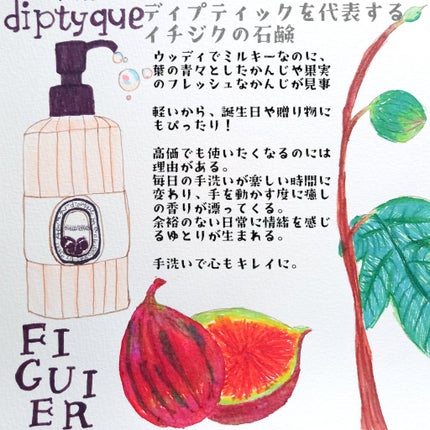 diptyque
ディプティックを代表する
イチジクの石鹸
ウッディでミルキーなのに、
葉の青々としたかんじや果実
のフレッシュなかんじが見事
軽いから、誕生日や贈り物に
もぴったり！
高価でも使いたくなるのには
理由がある。
毎日の手洗いが楽しい時間に
変わり、手を動かす度に癒し
の香りが漂ってくる。
余裕のない日常に情緒を感じ
るゆとりが生まれる。
手洗いで心もキレイに。
FI
GUI
ER